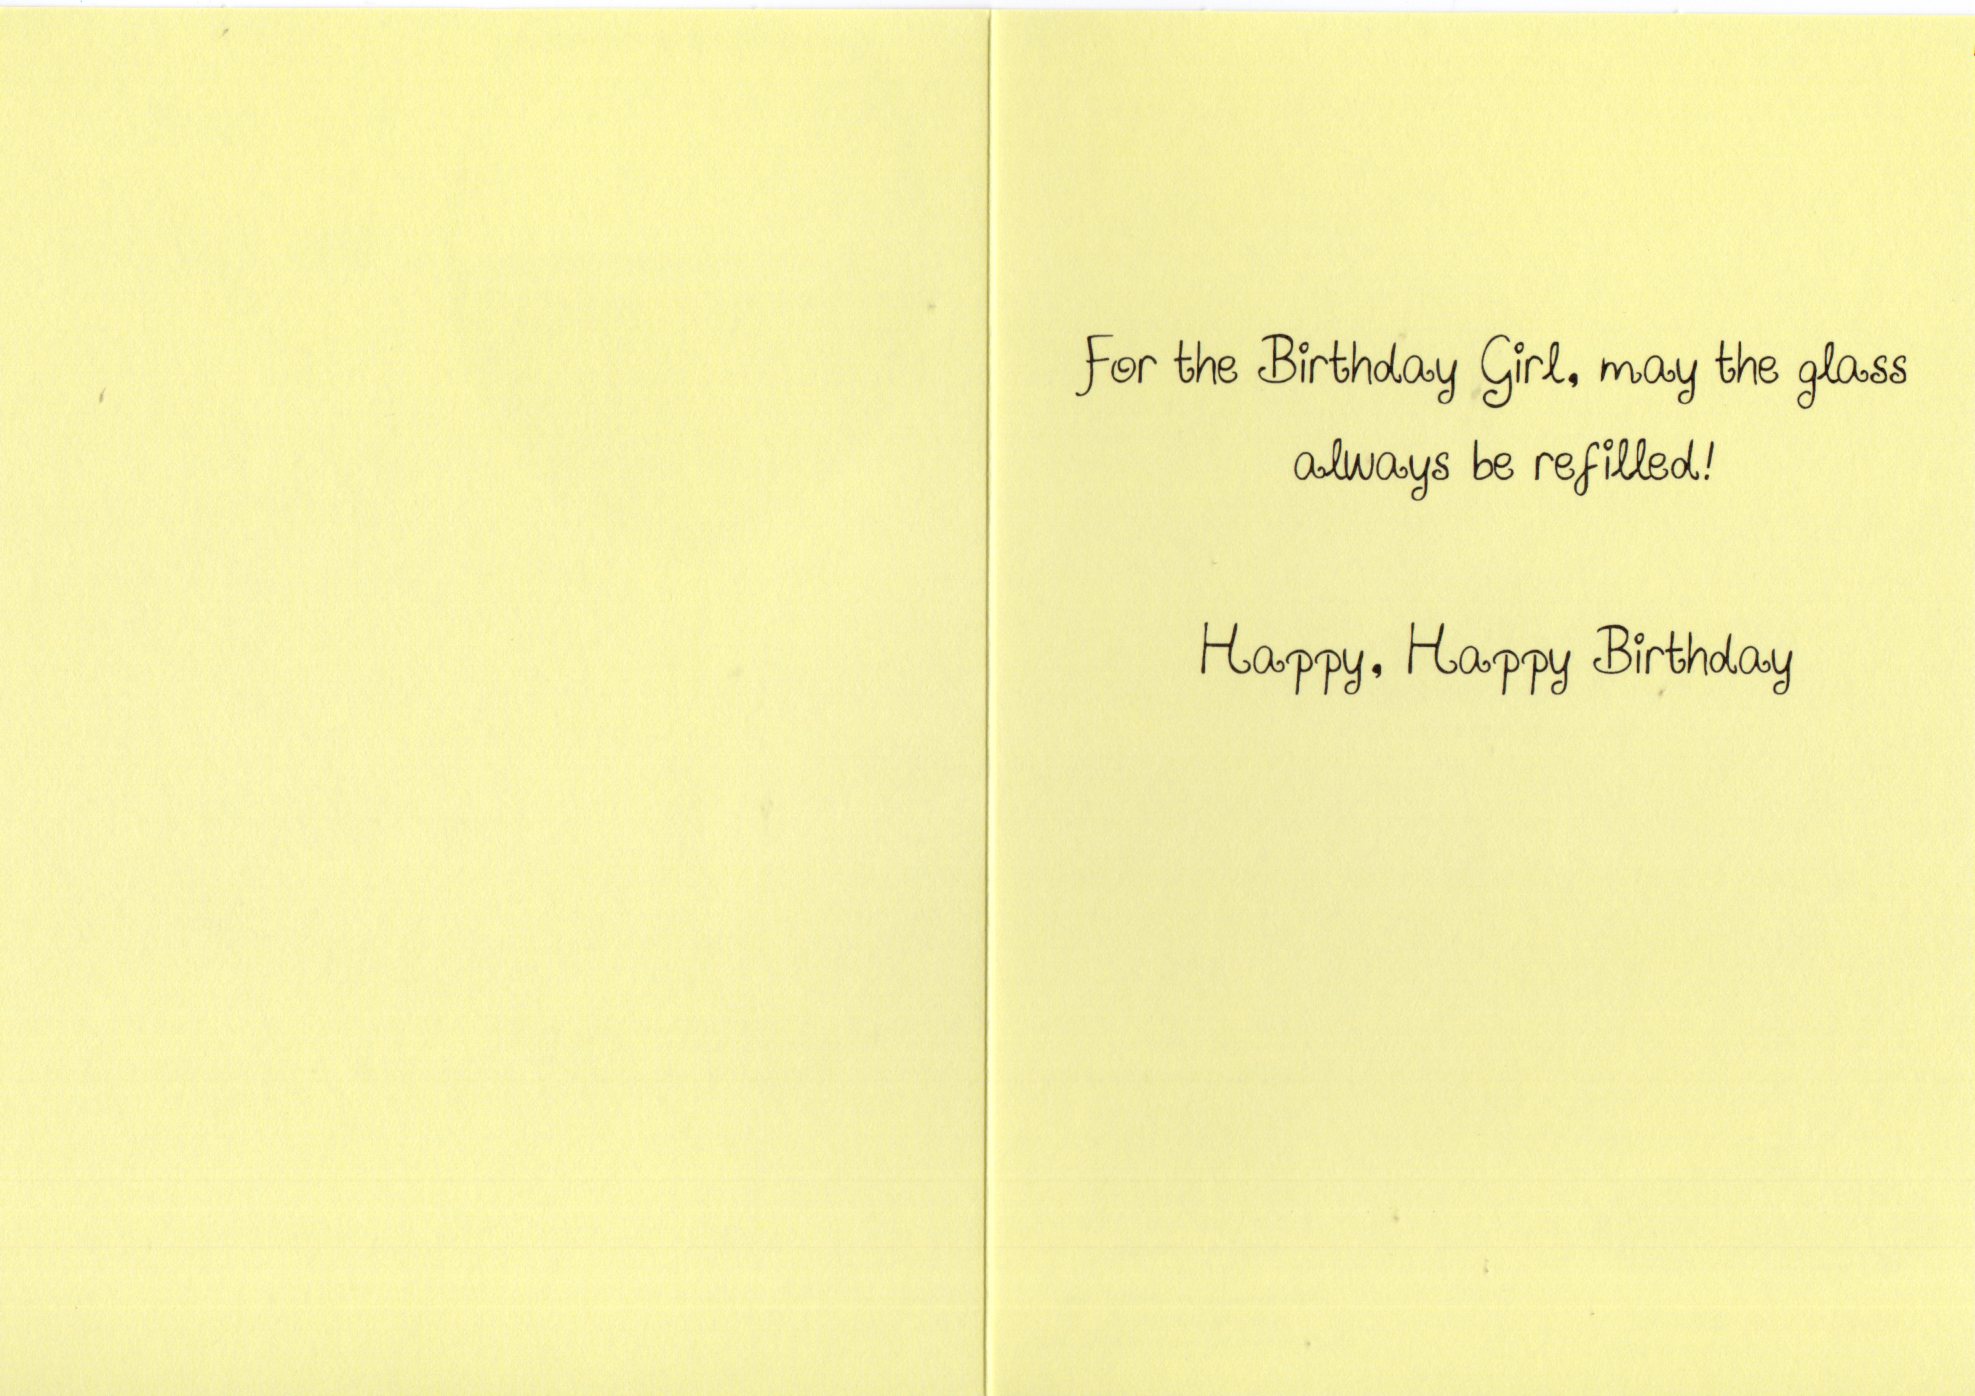 For the Birthday Girl, may the glass
always be refilled!
Happy, Happy Birthday